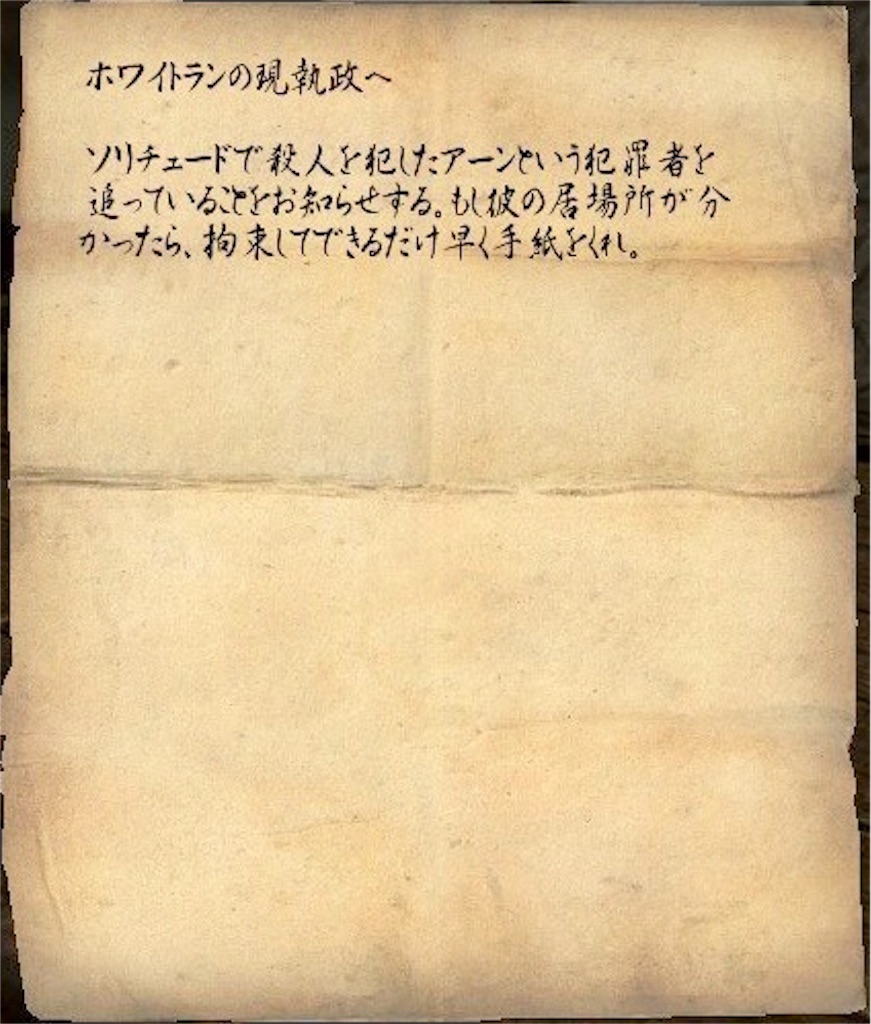 ホワイトランの現執政へ
ソリチュードで殺人を犯したアーンという犯罪者を
追っていることをお知らせする。もし彼の居場所が分
かったら、拘束してできるだけ早く手紙をくれ。